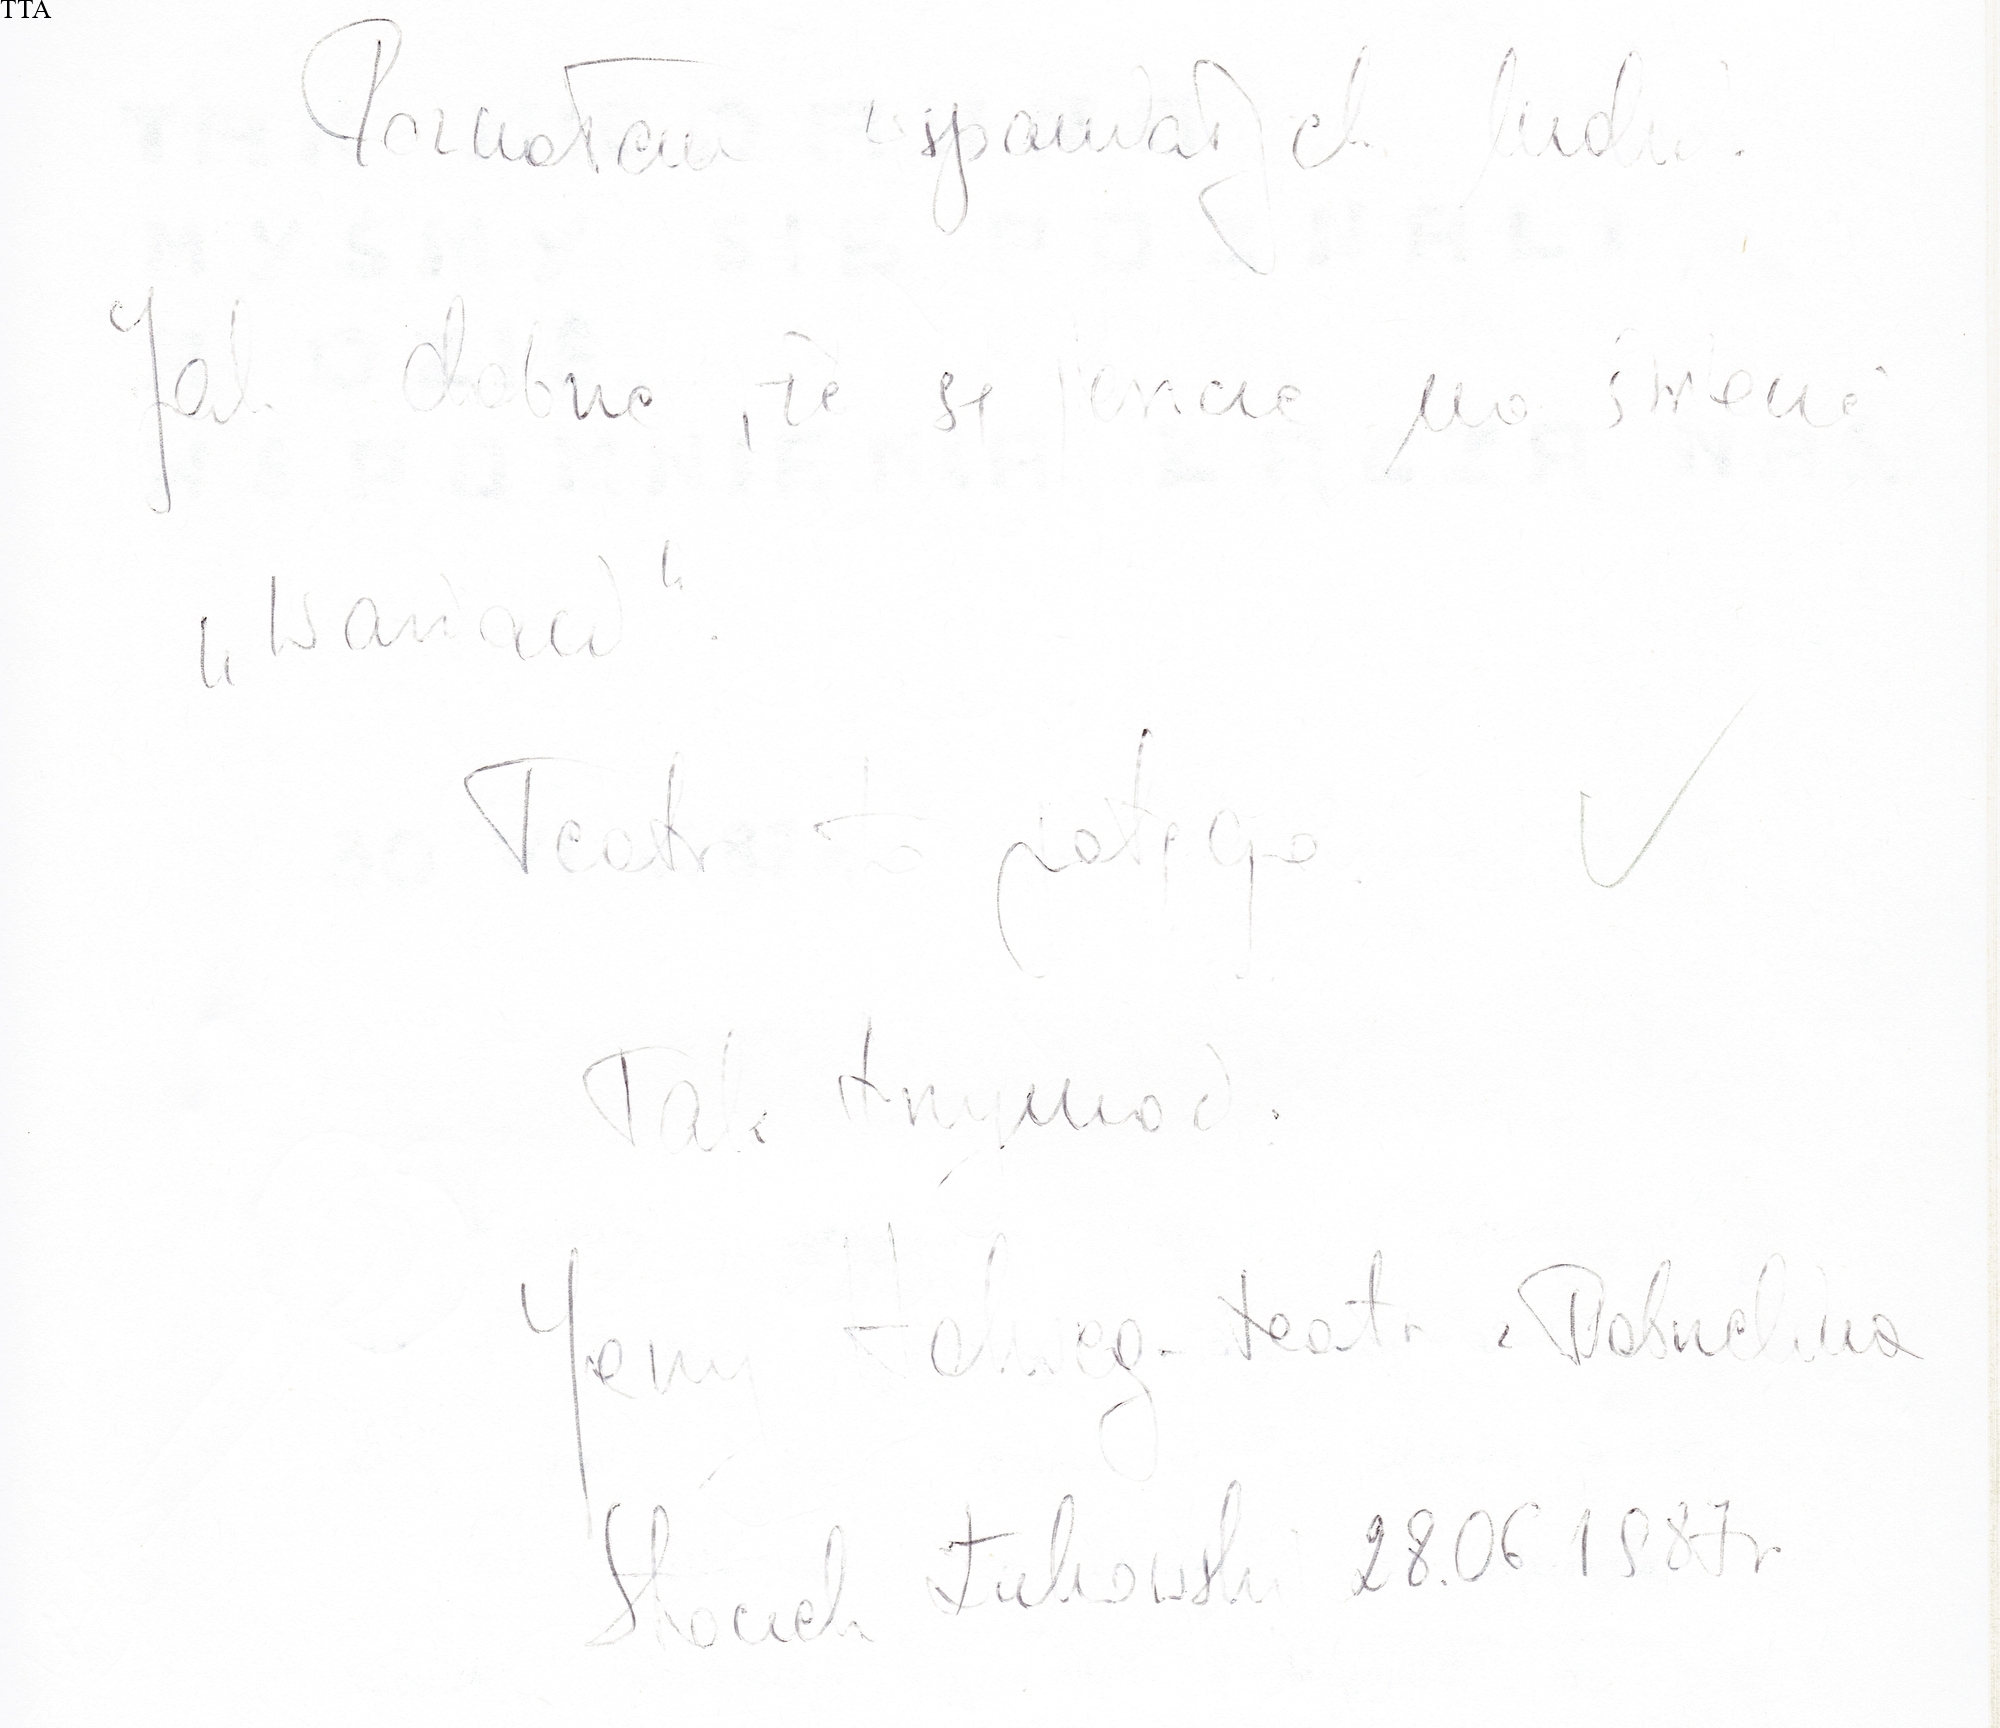 TTA
Poznałam wspaniałych ludzi.
Jak dobrze, że są jeszcze na świecie
„Wariaci“.
Teatr to potęga.
Tak trzymać.
Jerzy teatr z Dobrzelina
Stasiek Żukowski 28.06 1987r